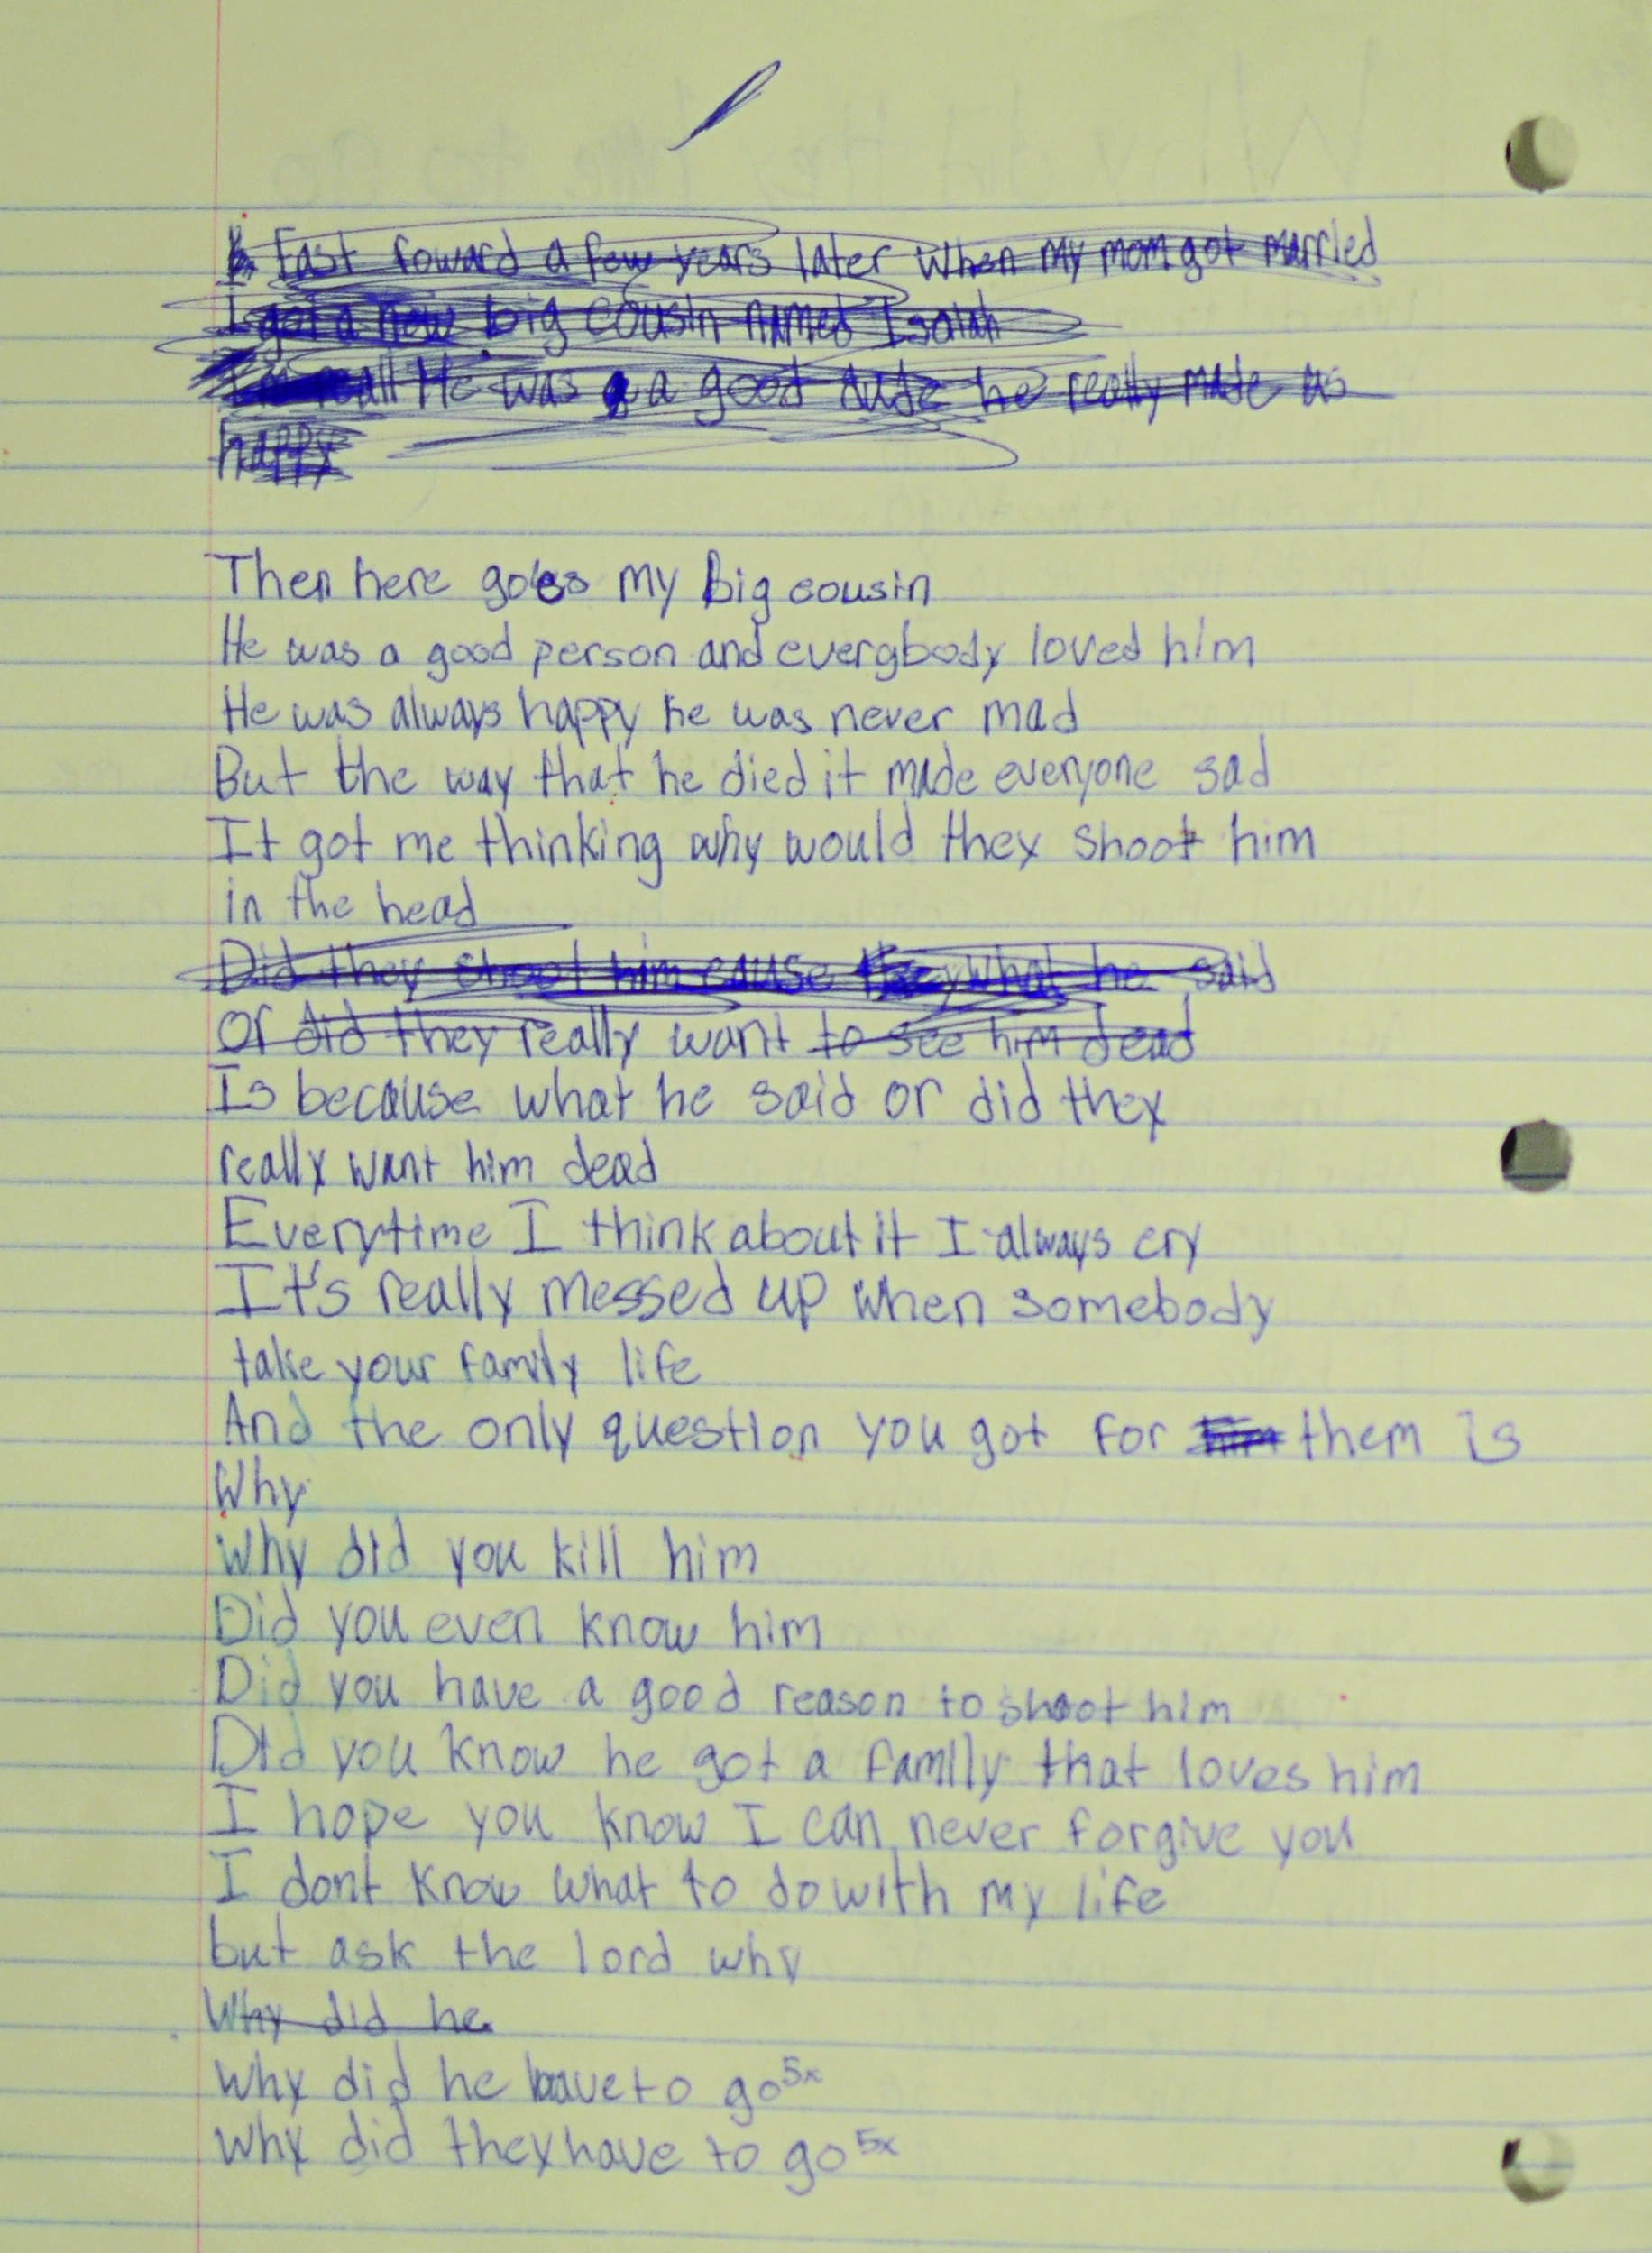 Fast foward a few years later when my mom got married
I got a new big cousin named Isaiah
He was a good dude he really made us
happy
Then here goes my big cousin
He was a good person and evergbody loved him
He was always happy he was never mad
But the way that he died it made everyone sad
It got me thinking why would they shoot him
in the head
Did they shoot him cause what he said
Or did they really want to see him dead
Is because what he said or did they
really want him dead
Everytime I think about it I always cry
It's really messed up when somebody
take your family life
And the only question you got for him them is
Why
Why did you kill him
Did you even know him
Did you have a good reason to shoot him
Did you know he got a family that loves him
I hope you know I can never forgive you
I dont know what to do with my life
but ask the lord why
Why did he
Why did he have to go 5x
Why did they have to go 5x